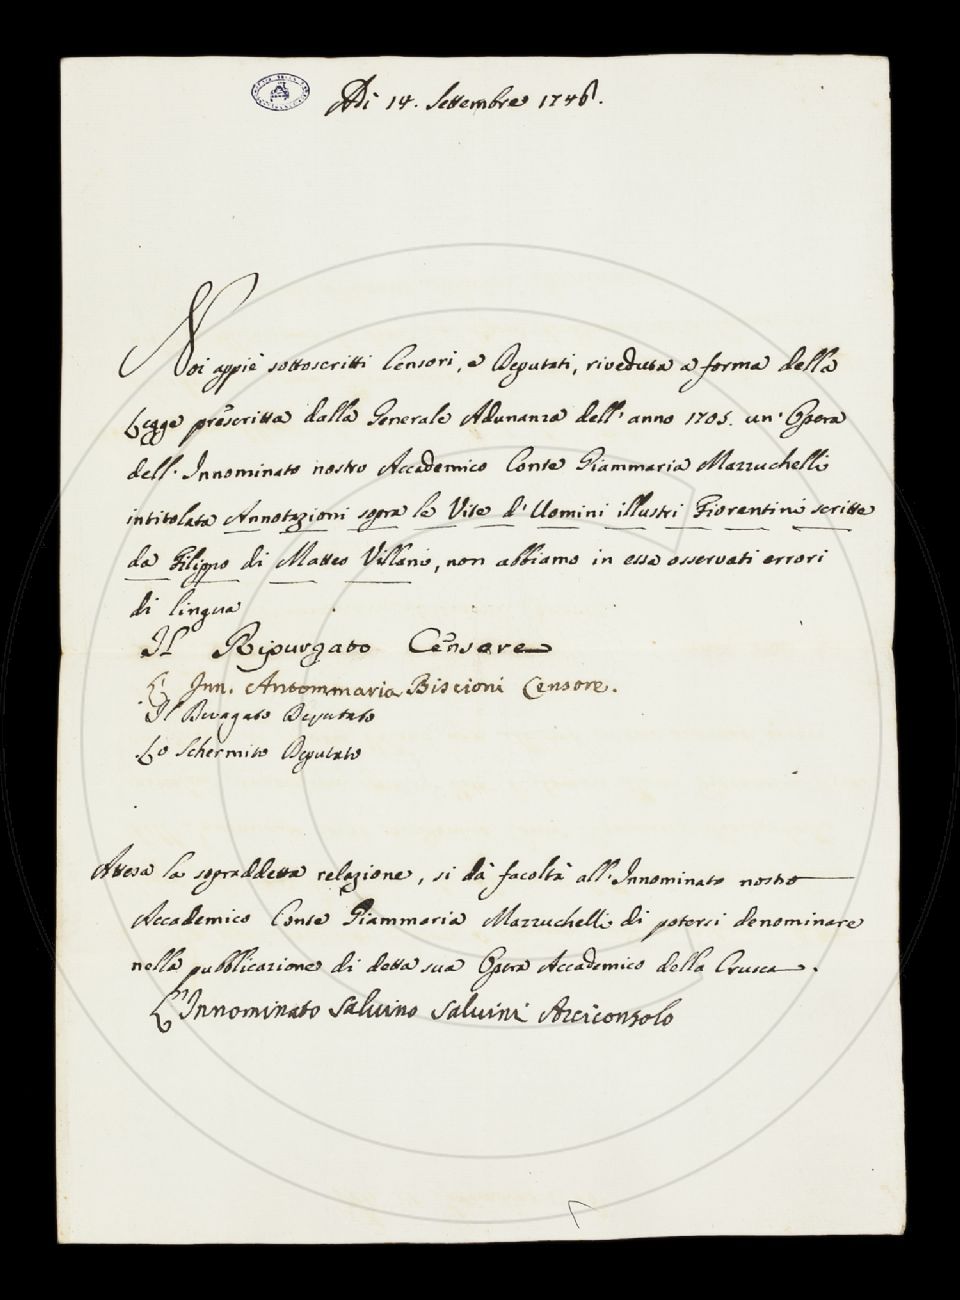 Adi 14. Settembre 1746.
Noi appiè sottoscritti Censori, e Deputati, riveduta a forma della
Legge prescritta dalla Generale Adunanza dell' anno 1705. un' Opera
dell' Innominato nostro Accademico Conte Giammaria Mazzuchelli
intitolata Annotazioni sopra le Vite d' Uomini illustri Fiorentini scritte
da Filippo di Matteo Villani, non abbiamo in essa osservati errori
di lingua
Il Ripurgato Censore
L' Inn. Antommaria Biscioni Censore.
Il Deputato
Lo Schermito Deputato
Attesa la sopraddetta relazione, si dà facoltà all' Innominato nostro
Accademico Conte Giammaria Mazzuchelli di potersi denominare
nella pubblicazione di detta sua Opera Accademico della Crusca.
L' Innominato Salvino Salvini Arciconsolo